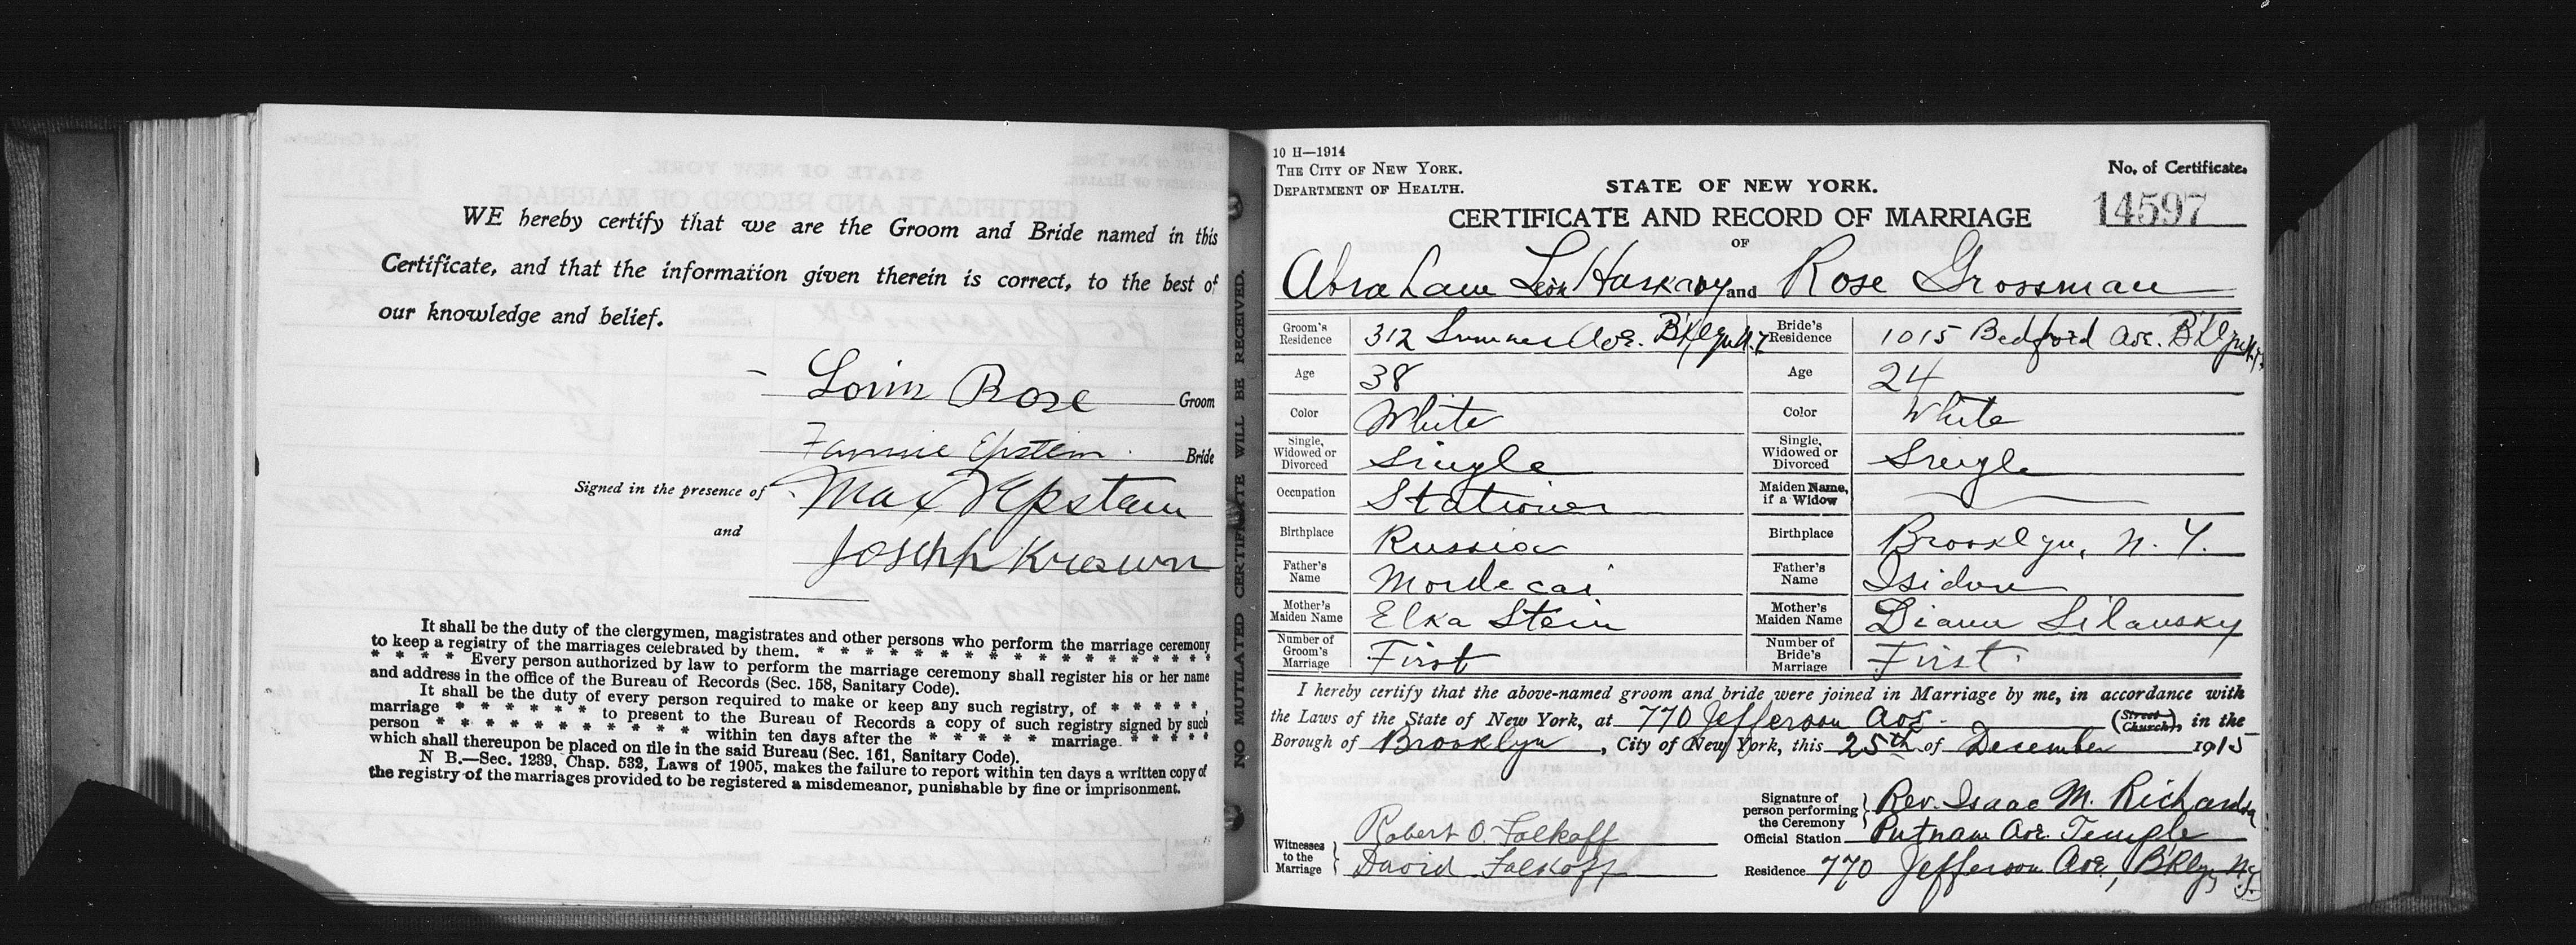 WE hereby certify that we are the Groom and Bride named in this
Certificate, and that the information given therein is correct, to the best of
our knowledge and belief.
Rose Groom
Fannie Epstein Bride
Signed in the presence of Max Epstein
and
Joseph
It shall be the duty of the clergymen, magistrates and other persons who perform the marriage ceremony
to keep a registry of the marriages celebrated by them. * * * * * * * * * * * * * * *
* * * * Every person authorized by law to perform the marriage ceremony shall register his or her name
and address in the office of the Bureau of Records (Sec. 158, Sanitary Code).
It shall be the duty of every person required to make or keep any such registry, of * * * * *,
marriage * * * * * * to present to the Bureau of Records a copy of such registry signed by such
person * * * * * * * * * * * within ten days after the * * * * * marriage * * * * *
which shall thereupon be placed on file in the said Bureau (Sec. 161, Sanitary Code).
N B.—Sec. 1239, Chap. 532, Laws of 1905, makes the failure to report within ten days a written copy of
the registry of the marriages provided to be registered a misdemeanor, punishable by fine or imprisonment.
NO MUTILATED CERTIFICATE WILL BE RECEIVED.
10 H—1914
THE CITY OF NEW YORK.
DEPARTMENT OF HEALTH.
No. of Certificate.
14597
STATE OF NEW YORK.
CERTIFICATE AND RECORD OF MARRIAGE
OF
Abraham Leon Haskavy and Rose Grossman
Groom's Residence 312 Sumner Ave. Bklyn N.Y. Bride's Residence 1015 Bedford Ave. Bklyn N.Y.
Age 38 Age 24
Color White Color White
Single, Widowed or Divorced Single Single, Widowed or Divorced Single
Occupation Stationer Maiden Name, if a Widow
Birthplace Russia Birthplace Brooklyn, N.Y.
Father's Name Mordecai Father's Name Isidore
Mother's Maiden Name Elka Stein Mother's Maiden Name Silausky
Number of Groom's Marriage First Number of Bride's Marriage First
I hereby certify that the above-named groom and bride were joined in Marriage by me, in accordance with
the Laws of the State of New York, at 770 Jefferson Ave. (Street Church), in the
Borough of Brooklyn, City of New York, this 25th of December 1915
Signature of person performing the Ceremony Rev. Isaac M. Richards
Official Station Putnam Ave. Temple
Residence 770 Jefferson Ave, Bklyn N.Y.
Witnesses to the Marriage Robert O. Falkoff
David Falkoff